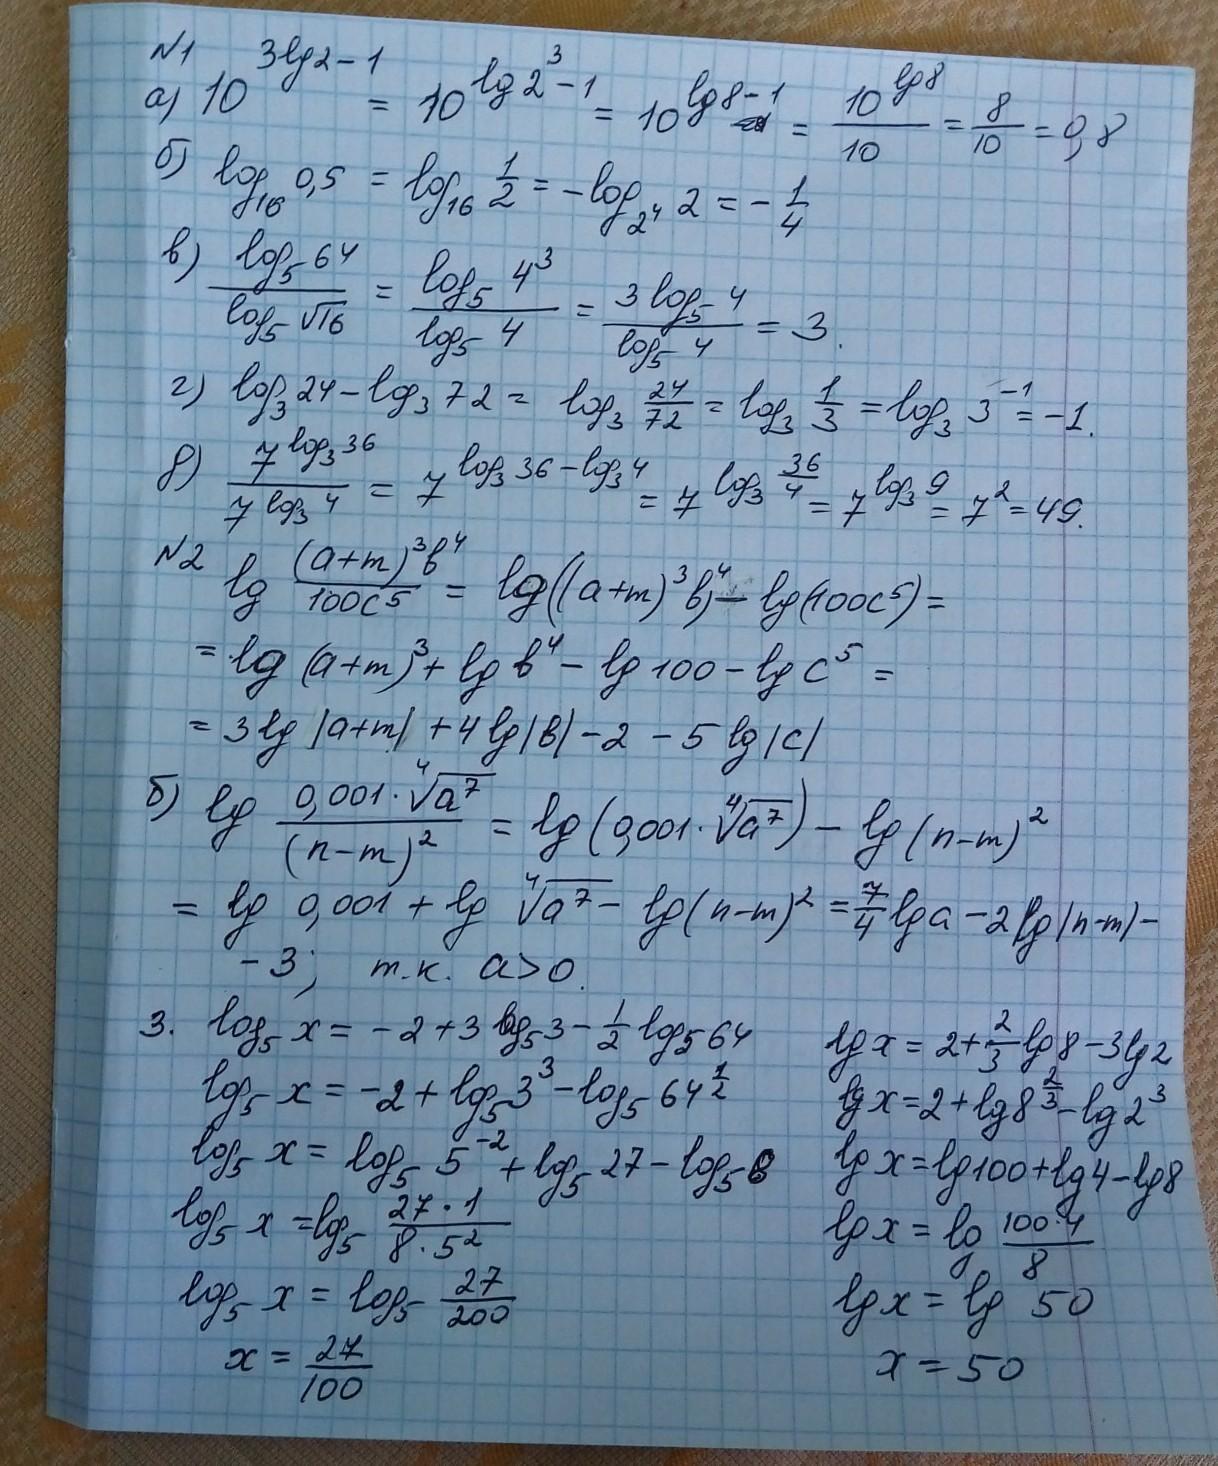 №1
а) 10^(3lg2-1) = 10^(lg2^3-1) = 10^(lg8-1) = 10^(lg8)/10 = 8/10 = 0,8
б) log₁₆ 0,5 = log₁₆ 1/2 = -log_(2^4) 2 = -1/4
в) log₅64/log₅√16 = log₅4³/log₅4 = 3log₅4/log₅4 = 3.
г) log₃24 - log₃72 = log₃ 24/72 = log₃ 1/3 = log₃ 3^(-1) = -1.
д) 7^(log₃36)/7^(log₃4) = 7^(log₃36-log₃4) = 7^(log₃ 36/4) = 7^(log₃9) = 7² = 49.
№2 lg (a+m)³b⁴/100c⁵ = lg((a+m)³b⁴) - lg(100c⁵) =
= lg(a+m)³ + lg b⁴ - lg 100 - lg c⁵ =
= 3lg|a+m| + 4lg|b| - 2 - 5lg|c|
б) lg 0,001·⁴√a⁷/(n-m)² = lg(0,001·⁴√a⁷) - lg(n-m)²
= lg 0,001 + lg ⁴√a⁷ - lg(n-m)² = 7/4 lg a - 2lg|n-m| -
-3; т.к. a>0.
3. log₅ x = -2 + 3log₅3 - 1/2 log₅64
log₅ x = -2 + log₅3³ - log₅64^(1/2)
log₅ x = log₅ 5^(-2) + log₅27 - log₅8
log₅ x = log₅ 27·1/8·5²
log₅ x = log₅ 27/200
x = 27/100
lg x = 2 + 2/3 lg8 - 3lg2
lg x = 2 + lg8^(2/3) - lg2³
lg x = lg100 + lg4 - lg8
lg x = lg 100·4/8
lg x = lg 50
x = 50